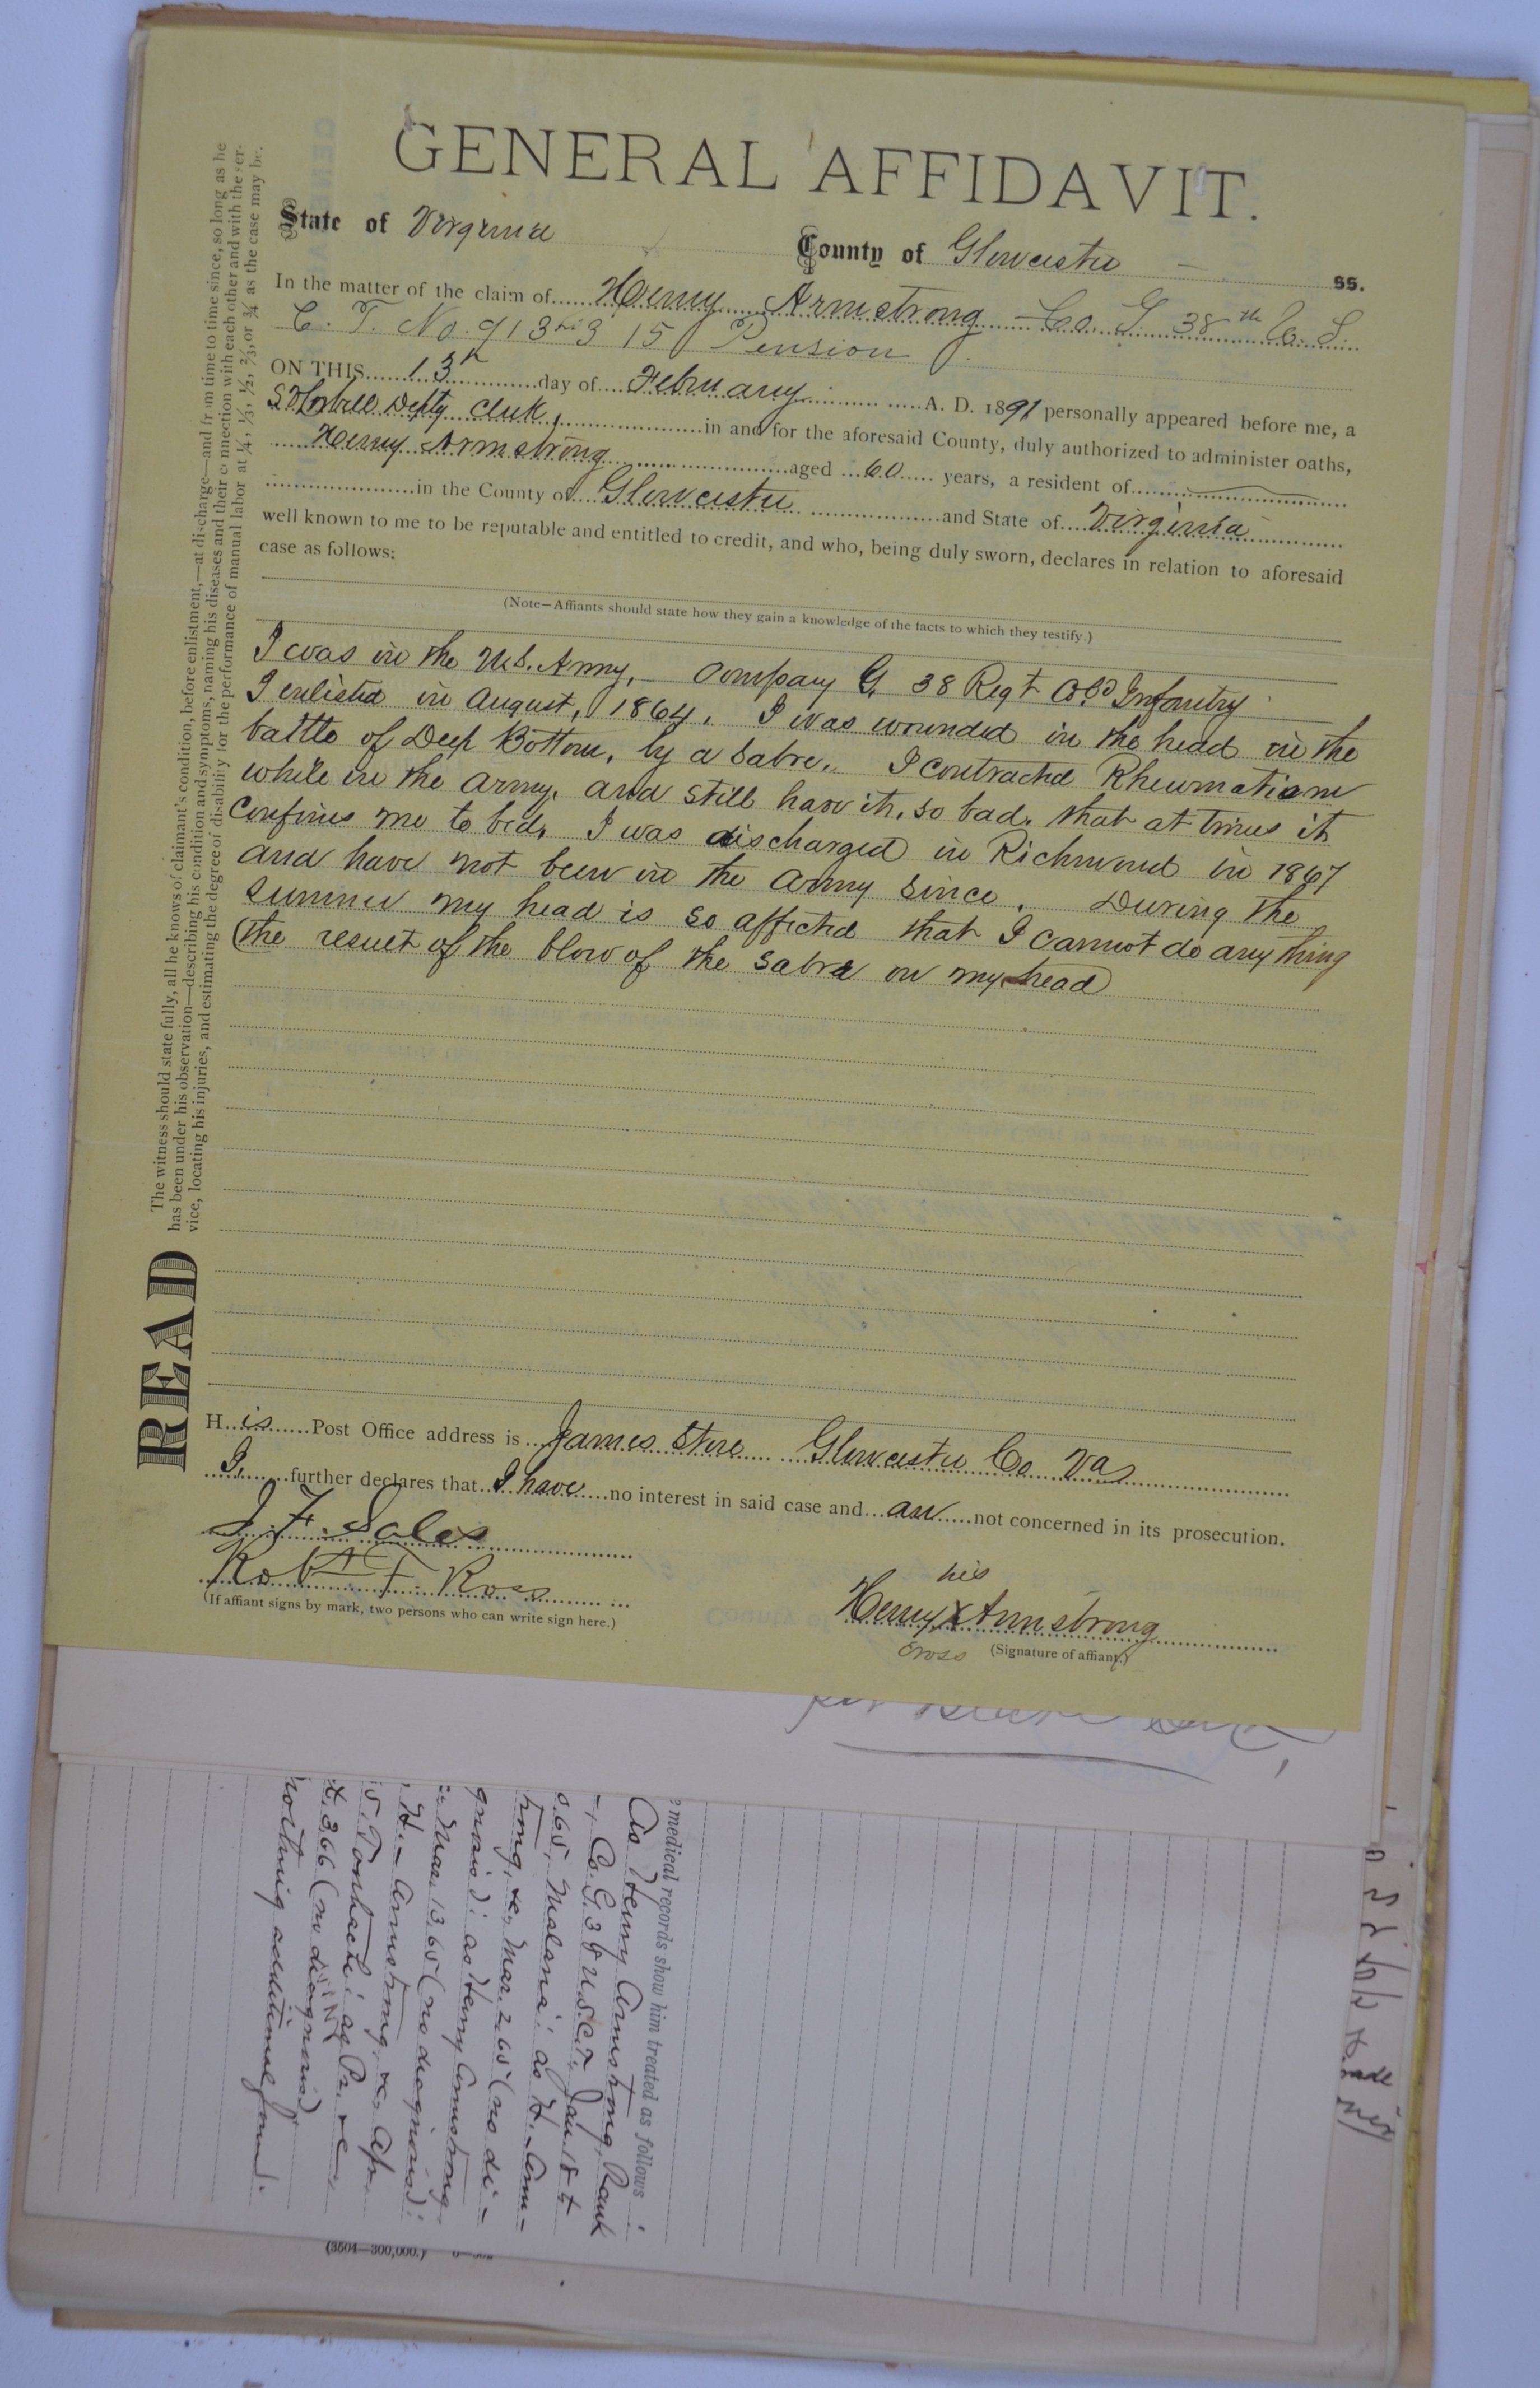 GENERAL AFFIDAVIT.
State of Virginia County of Gloucester ss.
In the matter of the claim of Henry Armstrong Co. G. 38th U. S.
C. T. No. 913 315 Pension
ON THIS 13th day of February A. D. 1891 personally appeared before me, a
Depty Clerk, in and for the aforesaid County, duly authorized to administer oaths,
Henry Armstrong aged 60 years, a resident of
in the County of Gloucester and State of Virginia
well known to me to be reputable and entitled to credit, and who, being duly sworn, declares in relation to aforesaid
case as follows:
(Note—Affiants should state how they gain a knowledge of the facts to which they testify.)
I was in the U.S. Army, – Company G, 38 Regt Cold Infantry
I enlisted in August, 1864. I was wounded in the head in the
battle of Deep Bottom, by a Sabre. I contracted Rheumatism
while in the Army, and still have it, so bad, that at times it
confines me to bed. I was discharged in Richmond in 1867
and have not been in the Army since. During the
summer my head is so affected that I cannot do any thing
(the result of the blow of the Sabre on my head)
His Post Office address is James Store Gloucester Co Va
I, further declares that I have no interest in said case and am not concerned in its prosecution.
J. F. Sales
Robt F. Ross
(If affiant signs by mark, two persons who can write sign here.)
his
Henry X Armstrong
cross (Signature of affiant.)
READ
The witness should state fully, all he knows of claimant's condition, before enlistment,—at discharge—and from time to time since, so long as he
has been under his observation—describing his condition and symptoms, naming his diseases and their connection with each other and with the ser-
vice, locating his injuries, and estimating the degree of disability for the performance of manual labor at ¼, ⅓, ½, ⅔, or ¾ as the case may be.
medical records show him treated as follows:
As Henry Armstrong, Rank
–, Co. G. 38 U.S.C.T. Jan. 18 to
65, Malaria: as H. Arm-
strong, &c, Mar. 2 65 (no di-
agnosis): as Henry Armstrong
Mar. 13, 65 (no diagnosis):
H. Armstrong, &c, Apr.
5. Tonhache: as Pr. &c,
3, 66 (no diagnosis)
nothing additional found.
(3504—300,000.)